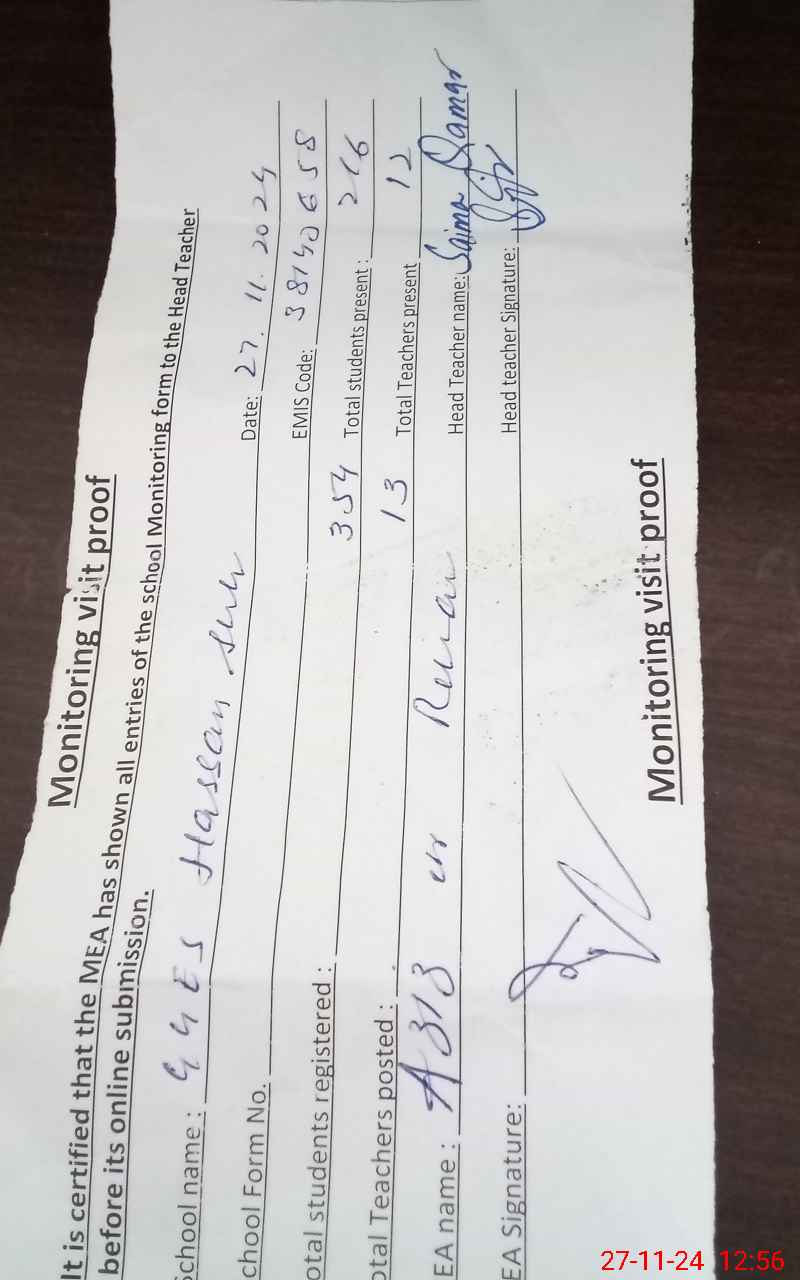 Monitoring visit proof
It is certified that the MEA has shown all entries of the school Monitoring form to the Head Teacher
before its online submission.
School name : GGES Hassan Date: 27.11.2024
chool Form No. EMIS Code:
otal students registered : 354 Total students present : 216
otal Teachers posted : 13 Total Teachers present 12
EA name : Head Teacher name: Saima Qamar
EA Signature: Head teacher Signature:
Monitoring visit proof
27-11-24 12:56